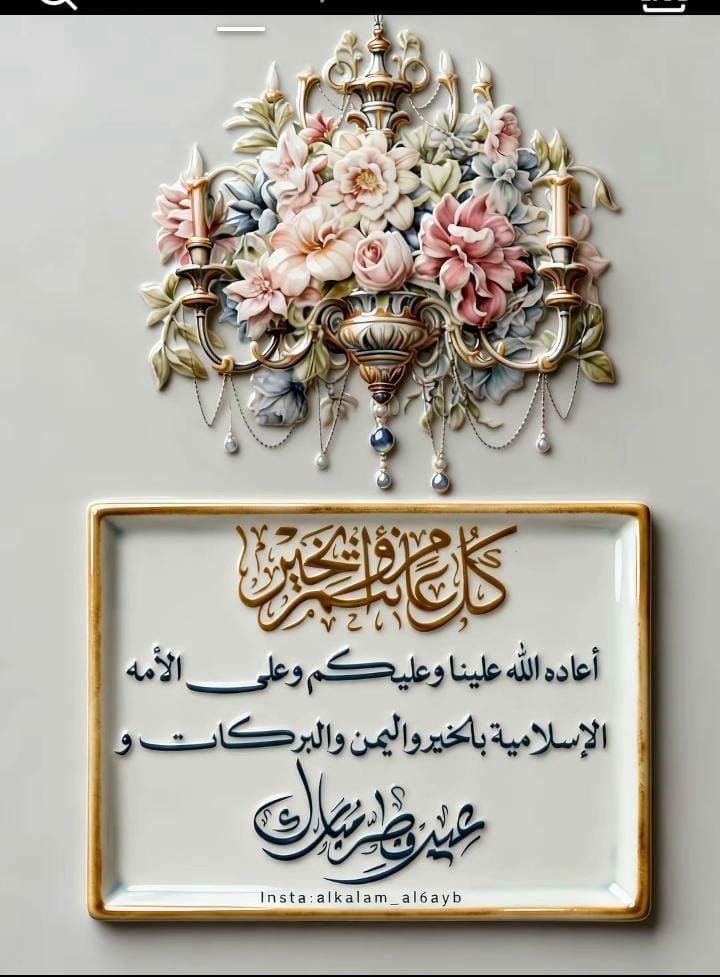 كل عام وأنتم بخير
أعاده الله علينا وعليكم وعلى الأمه
الإسلامية بالخير واليمن والبركات و
عيد فطر مبارك
Insta:alkalam_al6ayb